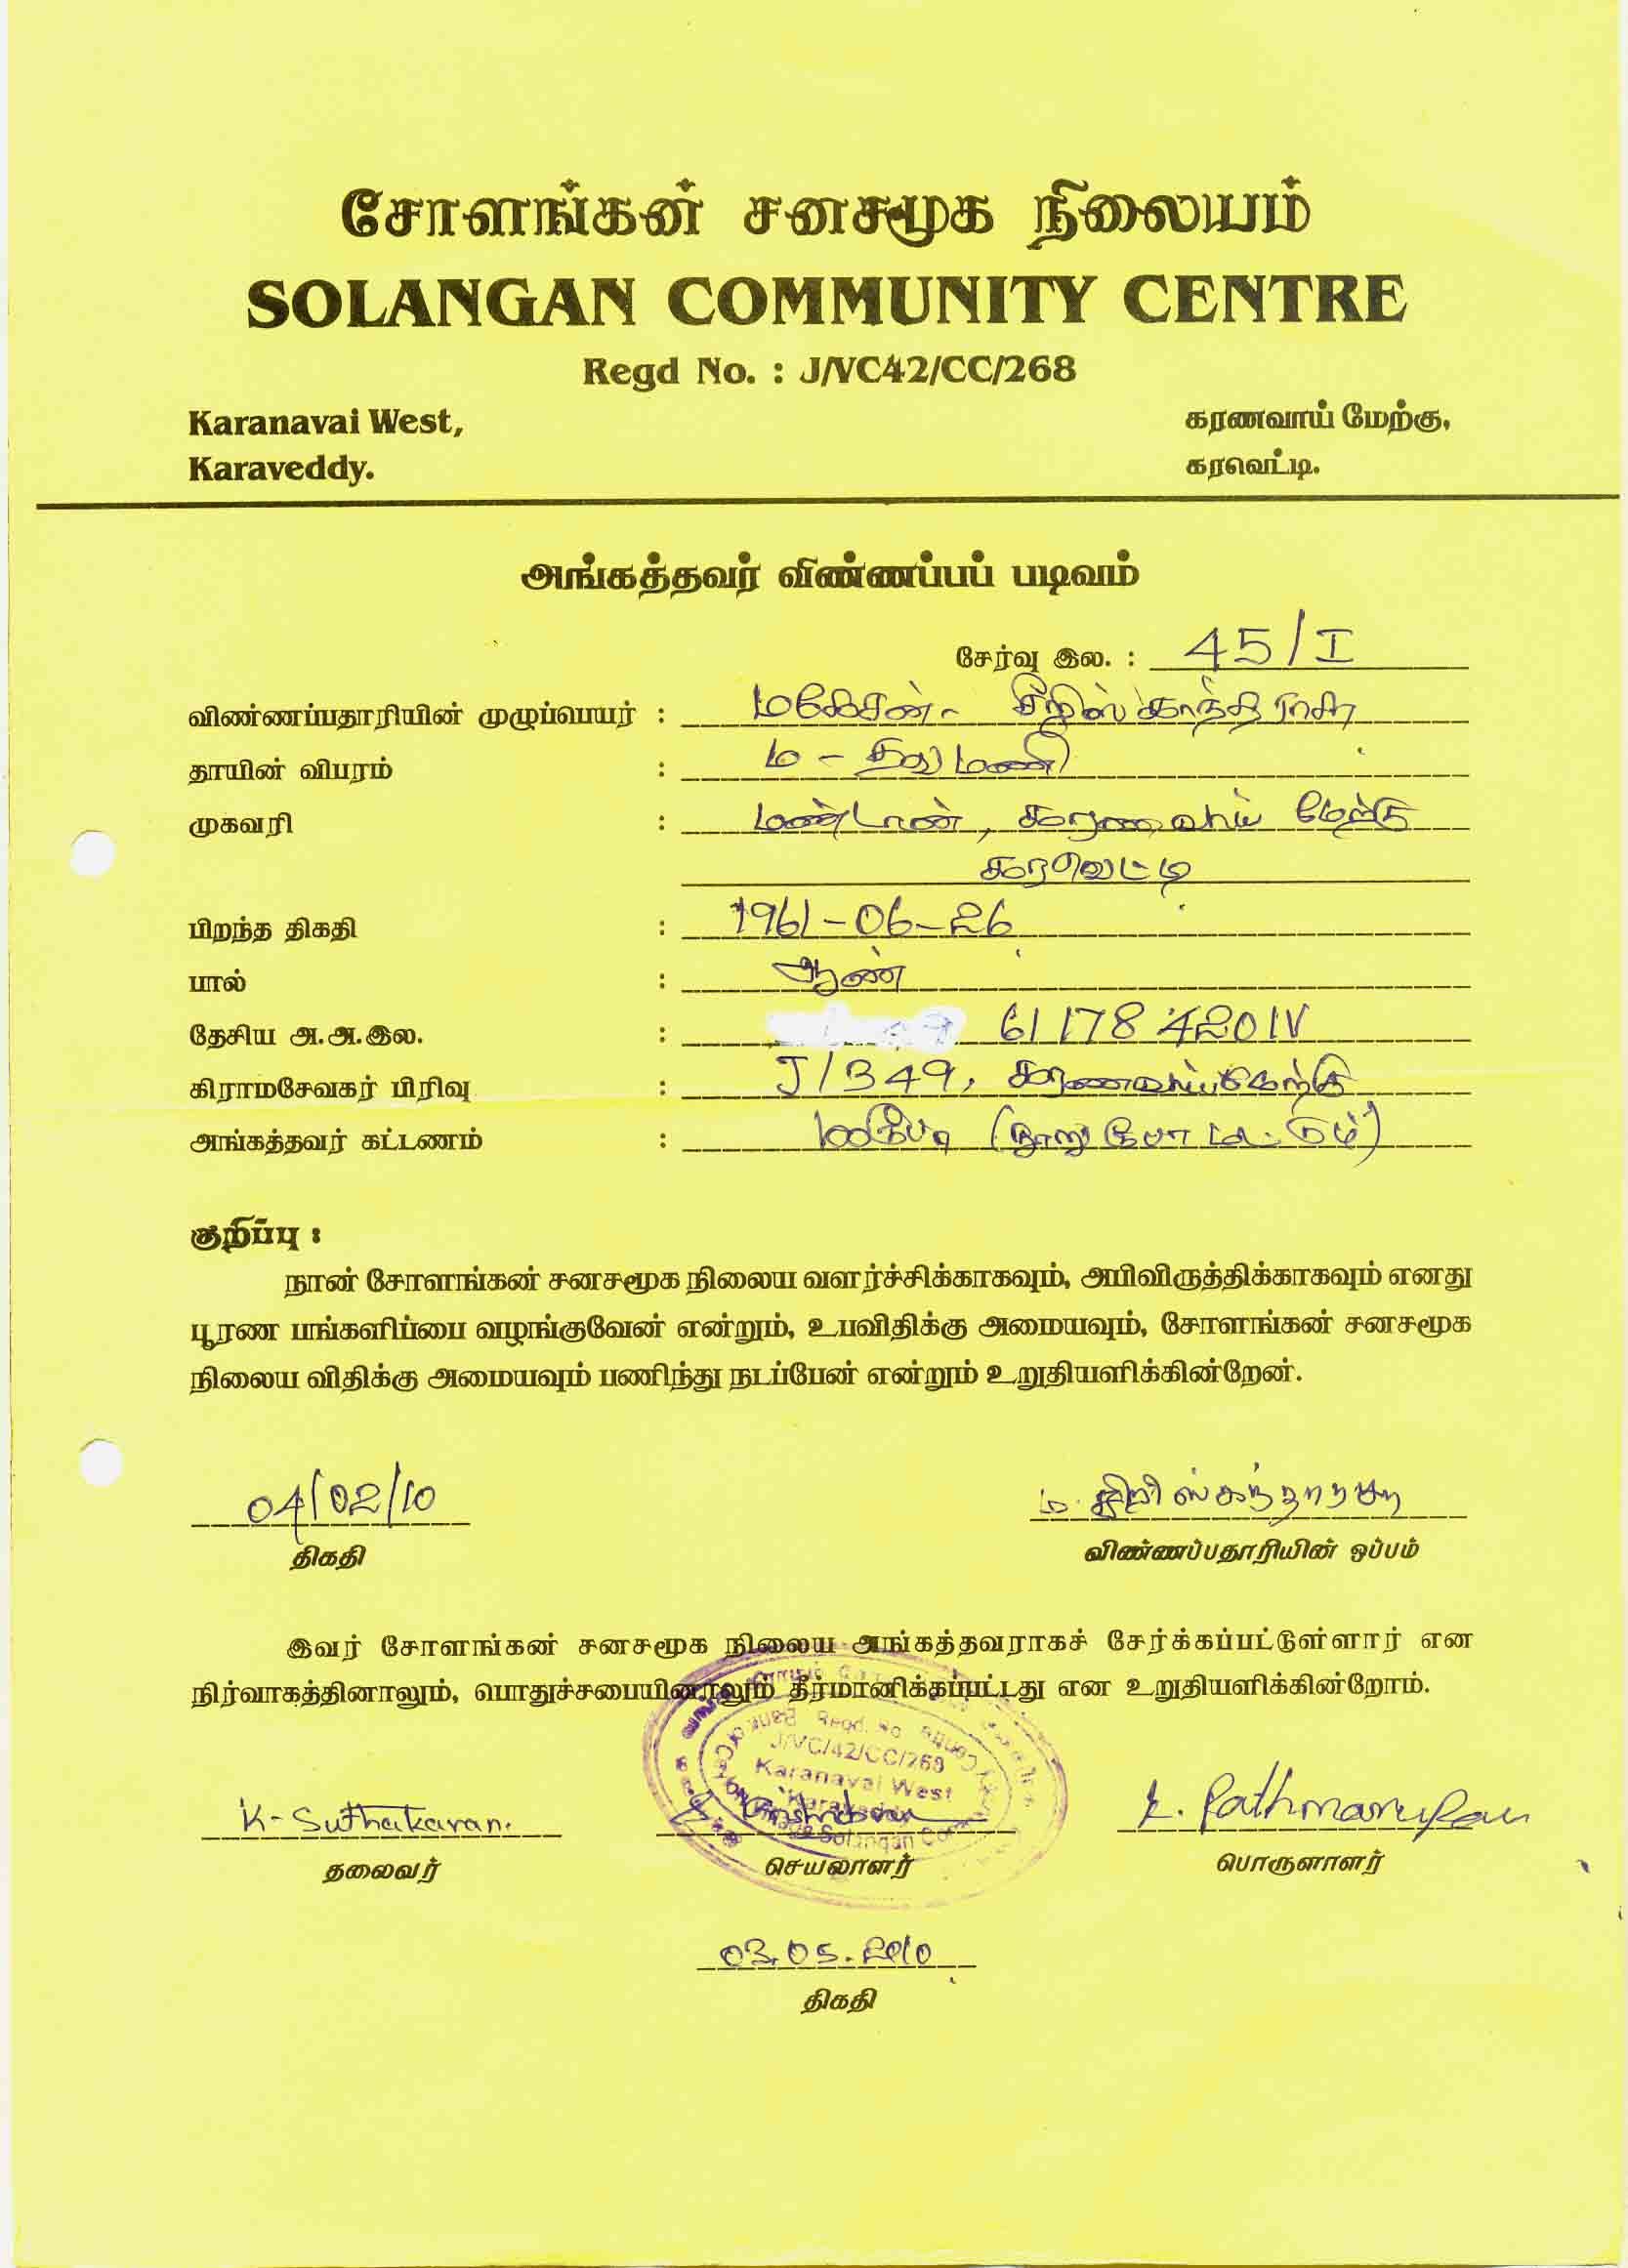 சோளங்கன் சனசமூக நிலையம்
SOLANGAN COMMUNITY CENTRE
Regd No. : J/VC42/CC/268
Karanavai West, கரணவாய் மேற்கு,
Karaveddy. கரவெட்டி.
அங்கத்தவர் விண்ணப்பப் படிவம்
சேர்வு இல. : 45/I
விண்ணப்பதாரியின் முழுப்பெயர் : மகேசன்-
தாயின் விபரம் : ம -
முகவரி : மண்டான், கரணவாய் மேற்கு
கரவெட்டி
பிறந்த திகதி : 1961-06-26
பால் : ஆண்
தேசிய அ.அ.இல. : 611784201V
கிராமசேவகர் பிரிவு : J/349, கரணவாய் மேற்கு
அங்கத்தவர் கட்டணம் :
குறிப்பு :
நான் சோளங்கன் சனசமூக நிலைய வளர்ச்சிக்காகவும், அபிவிருத்திக்காகவும் எனது
பூரண பங்களிப்பை வழங்குவேன் என்றும், உபவிதிக்கு அமையவும், சோளங்கன் சனசமூக
நிலைய விதிக்கு அமையவும் பணிந்து நடப்பேன் என்றும் உறுதியளிக்கின்றேன்.
04/02/10
திகதி விண்ணப்பதாரியின் ஒப்பம்
இவர் சோளங்கன் சனசமூக நிலைய அங்கத்தவராகச் சேர்க்கப்பட்டுள்ளார் என
நிர்வாகத்தினாலும், பொதுச்சபையினராலும் தீர்மானிக்கப்பட்டது என உறுதியளிக்கின்றோம்.
Regd. No
J/VC/42/CC/268
Karanavai West
K-Suthakaran.
தலைவர் செயலாளர் பொருளாளர்
03.05.2010
திகதி